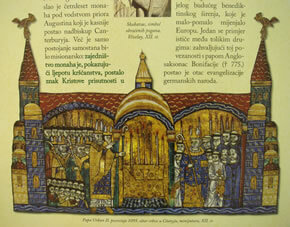 od oslao je četrdeset mona-
ha pod vodstvom priora
Augustina koji je kasnije
postao nadbiskup Can-
terburyja. Već je samo
postojanje samostana bi-
lo misionarsko: zajedniš-
tvo monaha je, pokazuju-
ći ljepotu kršćanstva, postalo
znak Kristove prisutnosti u
obraćenih pogana,
Vézelay, XII. st.
jelog budućeg benedik-
tinskog širenja, koje je
malo-pomalo mijenjalo
Europu. Jedan se primjer
ističe među tolikim dru-
gima: zahvaljujući toj po-
vezanosti s papom Anglo-
saksonac Bonifacije († 775.)
postao je otac evangelizacije
germanskih naroda.
Papa Urban II. posvećuje 1095. oltar crkve u Clunyju, minijatura, XII. st.